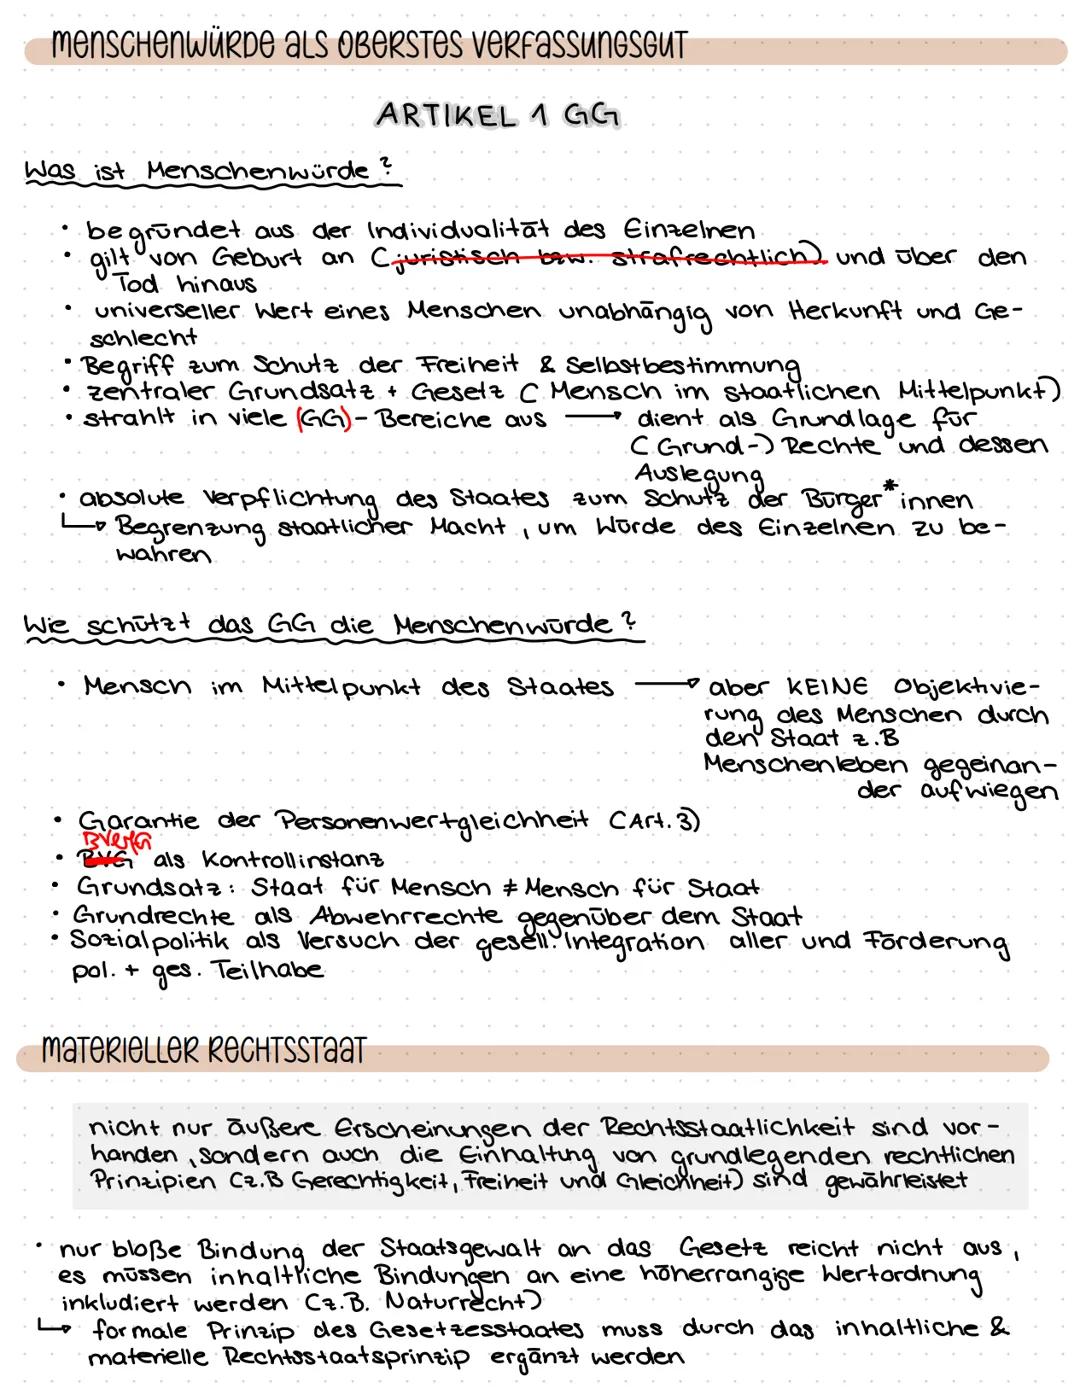 MENSCHENWÜRDE ALS OBERSTES VERFASSUNGSGUT
ARTIKEL 1 GG
Was ist Menschenwürde?
• begründet aus der Individualität des Einzelnen
• gilt von Geburt an (juristisch bzw. strafrechtlich) und über den
Tod hinaus
• universeller Wert eines Menschen unabhängig von Herkunft und Ge-
schlecht
• Begriff zum Schutz der Freiheit & Selbstbestimmung
• zentraler Grundsatz + Gesetz (Mensch im staatlichen Mittelpunkt)
• strahlt in viele (GG)-Bereiche aus → dient als Grundlage für
(Grund-) Rechte und dessen
Auslegung
• absolute Verpflichtung des Staates zum Schutz der Bürger*innen
↳ Begrenzung staatlicher Macht, um Würde des Einzelnen zu be-
wahren
Wie schützt das GG die Menschenwürde?
• Mensch im Mittelpunkt des Staates → aber KEINE Objektivie-
rung des Menschen durch
den Staat z.B
Menschenleben gegeinan-
der aufwiegen
• Garantie der Personenwertgleichheit (Art. 3)
BVerfG
• BVG als Kontrollinstanz
• Grundsatz: Staat für Mensch ≠ Mensch für Staat
• Grundrechte als Abwehrrechte gegenüber dem Staat
• Sozialpolitik als Versuch der gesell. Integration aller und Förderung
pol. + ges. Teilhabe
MATERIELLER RECHTSSTAAT
nicht nur äußere Erscheinungen der Rechtsstaatlichkeit sind vor-
handen, sondern auch die Einhaltung von grundlegenden rechtlichen
Prinzipien (z.B Gerechtigkeit, Freiheit und Gleichheit) sind gewährleistet
• nur bloße Bindung der Staatsgewalt an das Gesetz reicht nicht aus,
es müssen inhaltliche Bindungen an eine höherrangige Wertordnung
inkludiert werden (z.B. Naturrecht)
↳ formale Prinzip des Gesetzesstaates muss durch das inhaltliche &
materielle Rechtsstaatsprinzip ergänzt werden